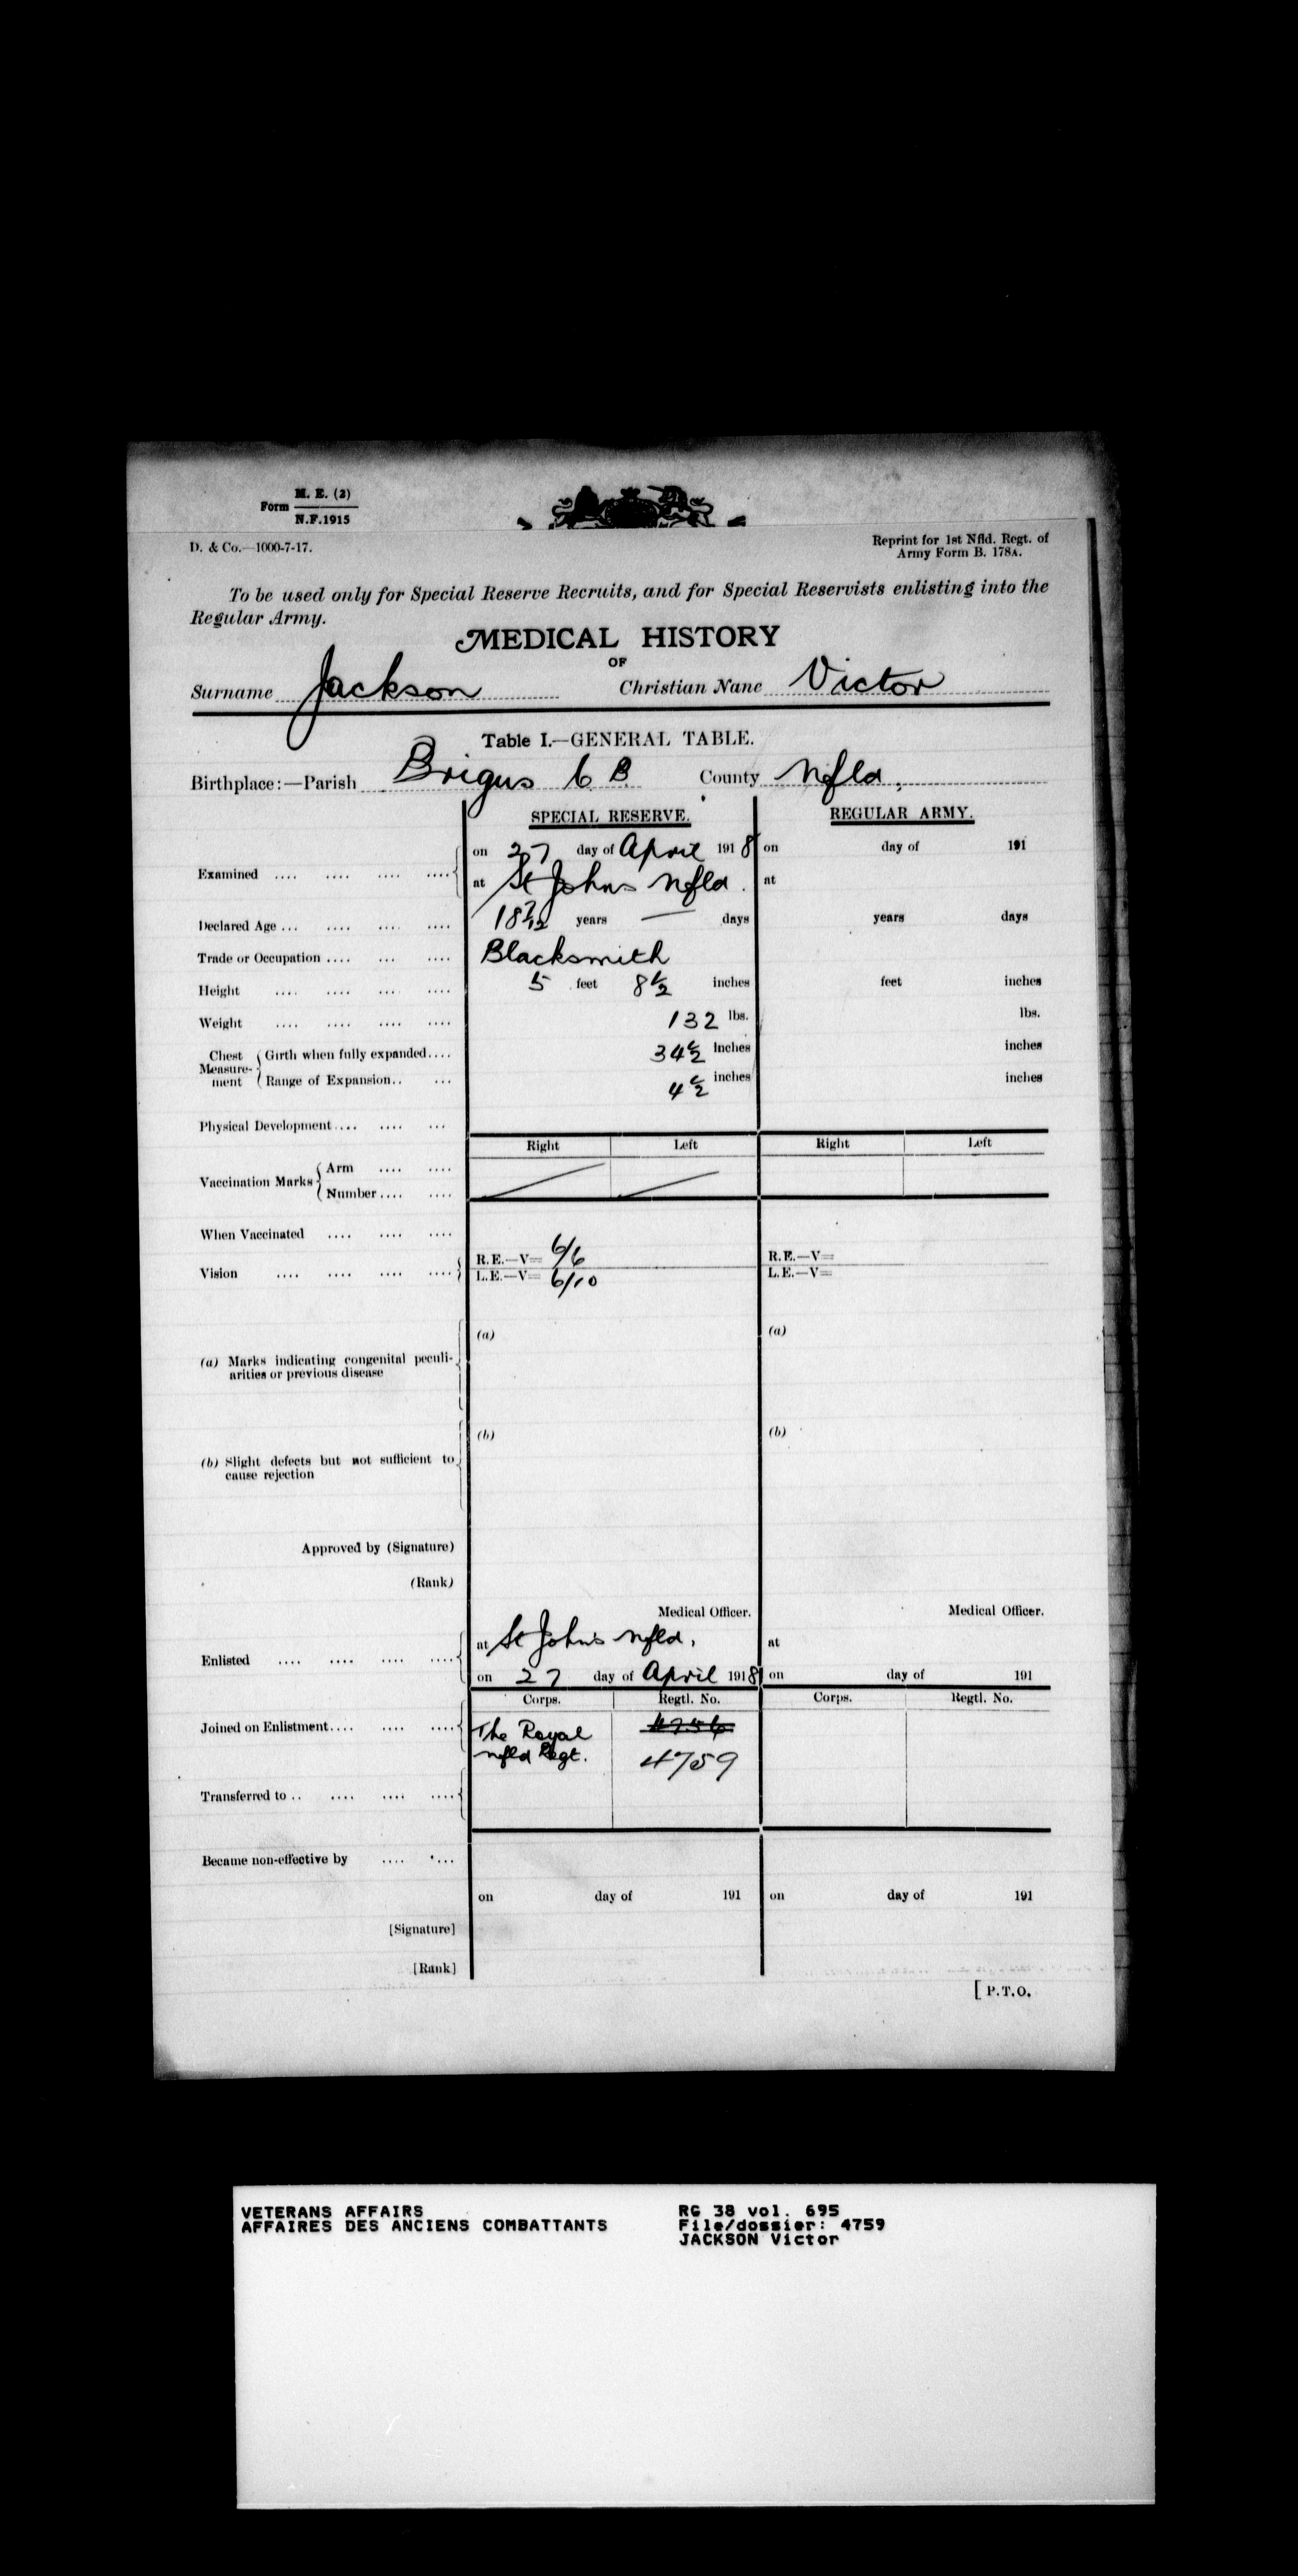 Form M. E. (2)
N.F.1915
D. & Co.—1000-7-17.
Reprint for 1st Nfld. Regt. of
Army Form B. 178A.
To be used only for Special Reserve Recruits, and for Special Reservists enlisting into the
Regular Army.
MEDICAL HISTORY
OF
Surname Jackson Christian Name Victor
Table I.—GENERAL TABLE.
Birthplace:—Parish Brigus C B. County Nfld.
SPECIAL RESERVE. REGULAR ARMY.
on 27 day of April 1918 on day of 191
Examined .... .... .... ....
at St Johns Nfld. at
Declared Age ... .... .... .... 18 7/12 years — days years days
Trade or Occupation .... ... .... Blacksmith
Height .... .... .... .... 5 feet 8 1/2 inches feet inches
Weight .... .... .... .... 132 lbs. lbs.
Chest Measurement Girth when fully expanded.... 34 1/2 Inches inches
Range of Expansion.. ... 4 1/2 inches inches
Physical Development.... .... ...
Right Left Right Left
Vaccination Marks Arm .... ....
Number.... ....
When Vaccinated .... .... ....
Vision .... .... .... ....
R.E.—V= 6/6 R.E.—V=
L.E.—V= 6/10 L.E.—V=
(a) (a)
(a) Marks indicating congenital peculi-
arities or previous disease
(b) (b)
(b) Slight defects but not sufficient to
cause rejection
Approved by (Signature)
(Rank)
Medical Officer. Medical Officer.
at St John's Nfld. at
Enlisted .... .... .... ....
on 27 day of April 1918 on day of 191
Corps. Regtl. No. Corps. Regtl. No.
Joined on Enlistment.... .... .... The Royal 4756
Nfld Regt. 4759
Transferred to .. .... .... ....
Became non-effective by .... ....
on day of 191 on day of 191
[Signature]
[Rank]
[ P.T.O.
VETERANS AFFAIRS RG 38 vol. 695
AFFAIRES DES ANCIENS COMBATTANTS File/dossier: 4759
JACKSON Victor